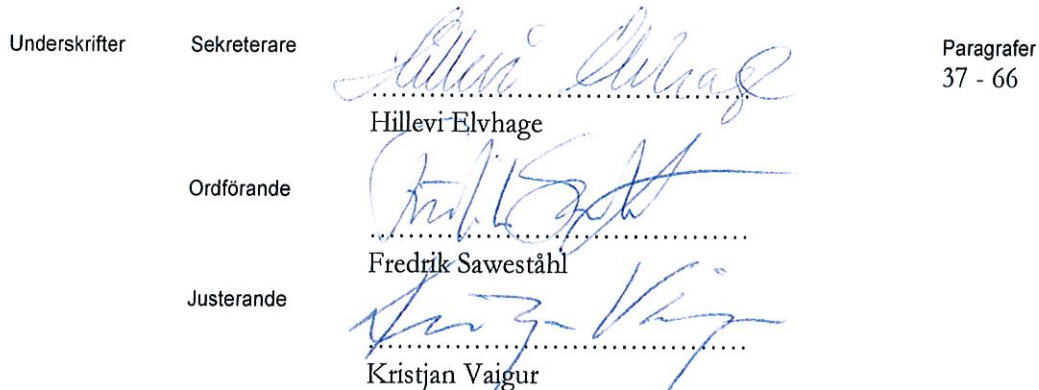 Underskrifter Sekreterare Hillevi Elvhage Paragrafer
37 - 66
Hillevi Elvhage
Ordförande
Fredrik Saweståhl
Justerande
Kristjan Vaigur